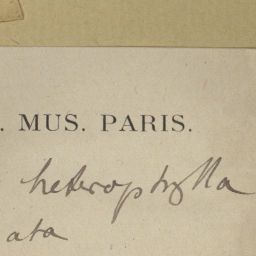 . MUS. PARIS.
heterophylla
ata